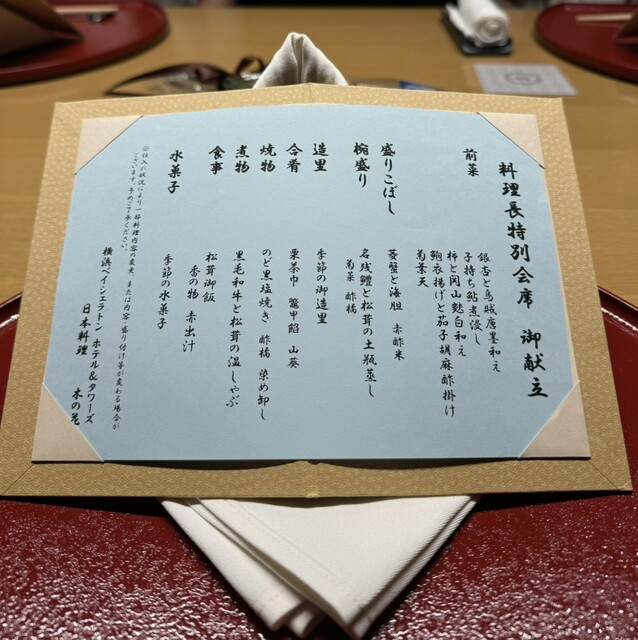 料理長特別会席 御献立
前菜
銀杏と烏賊唐墨和え
子持ち鮎煮浸し
柿と関山麩白和え
鮑衣揚げと茄子胡麻酢掛け
菊菜天
盛りこぼし
菱蟹と海胆 赤酢米
椀盛り
名残鱧と松茸の土瓶蒸し
菊菜 酢橘
造里
季節の御造里
合肴
栗茶巾 鼈甲餡 山葵
焼物
のど黒塩焼き 酢橘 染め卸し
煮物
黒毛和牛と松茸の温しゃぶ
食事
松茸御飯
香の物 赤出汁
水菓子
季節の水菓子
※仕入れ状況により一部料理内容の変更、または内容・盛り付け等が変わる場合が
ございます。予めご了承ください。
横浜ベイシェラトン ホテル&タワーズ
日本料理 木の花